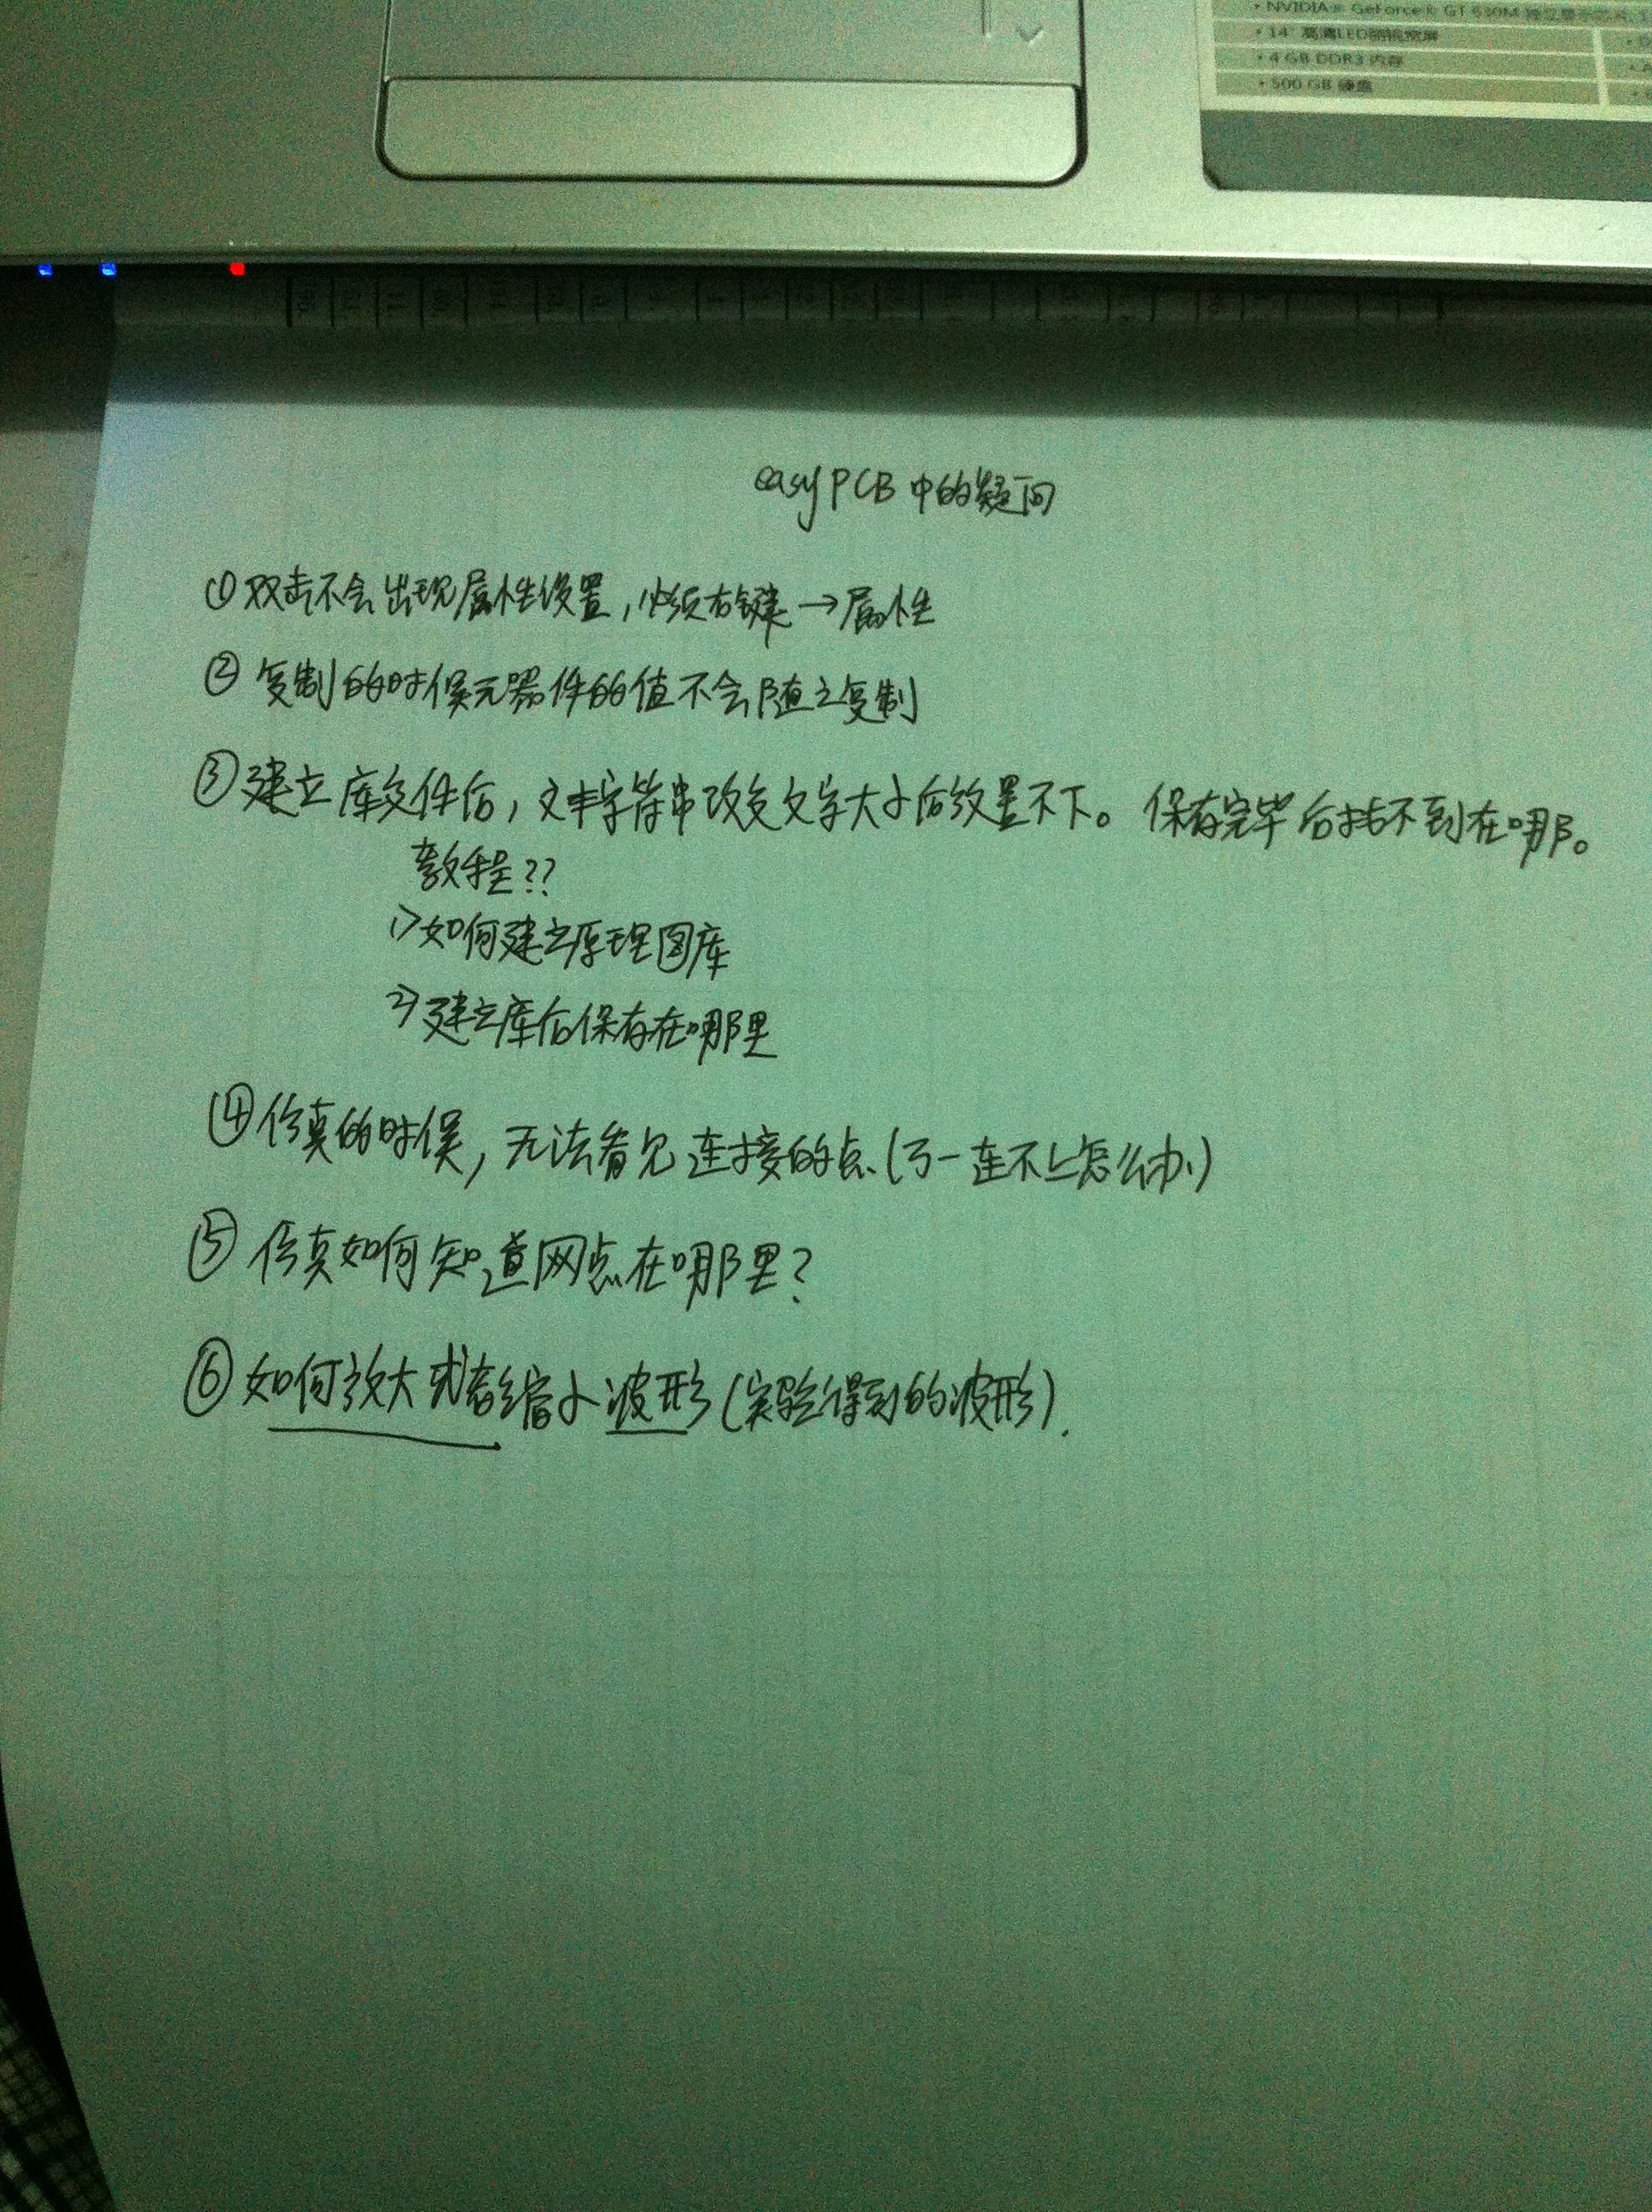 • NVIDIA® GeForce® GT 630M 独立显示芯片
• 14" 高清LED
• 4 GB DDR3 内存
• 500 GB 硬盘
easyPCB中的疑问
①双击不会出现属性设置,必须右键→属性
②复制的时候元器件的值不会随之复制
③建立库文件后,文本字符串改变文字大小后放置不下。保存完毕后找不到在哪。
教程??
1>如何建立原理图库
2>建立库后保存在哪里
④仿真的时候,无法看见连接的点(万一连不上怎么办)
⑤仿真如何知道网点在哪里?
⑥如何放大或者缩小波形(实验得到的波形).